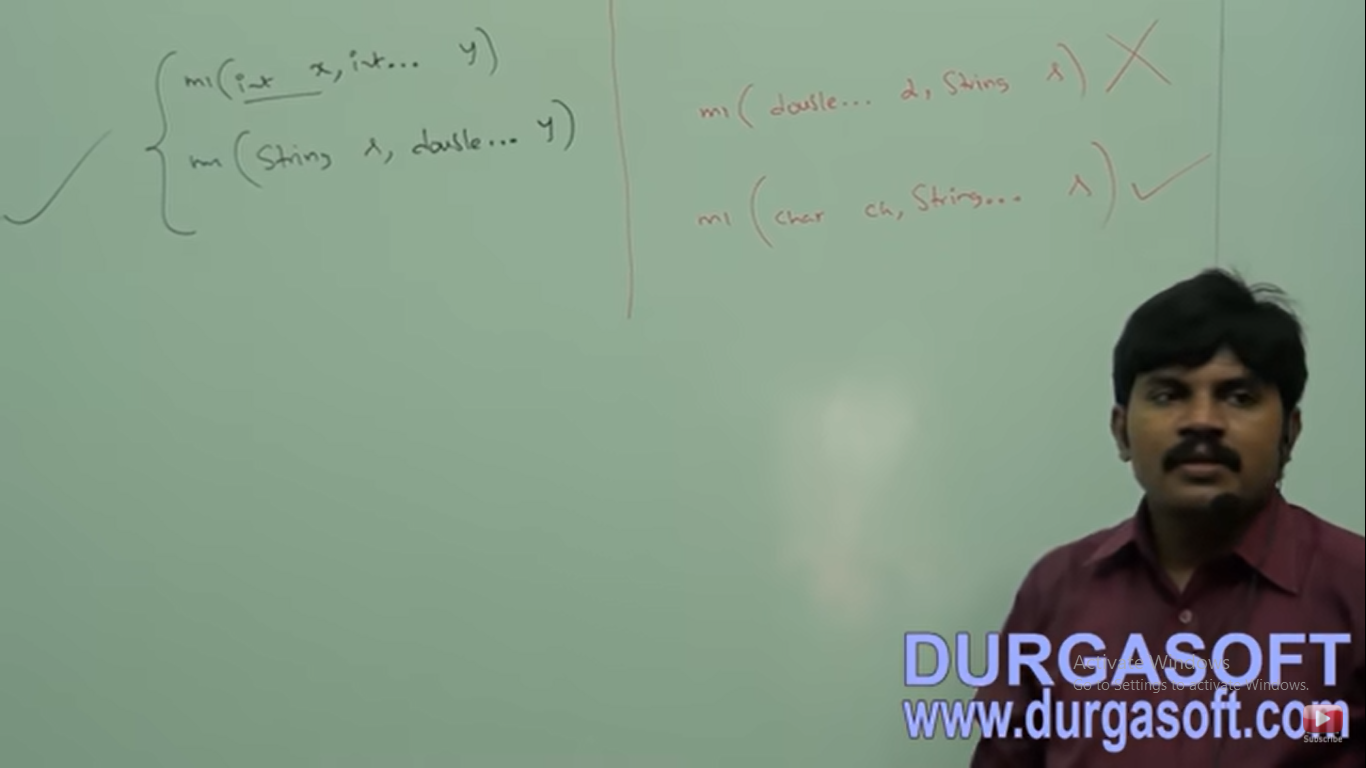 m1(int x, int... y)
m1(String s, double... y)
m1(double... d, String s)
m1(char ch, String... s)
DURGASOFT
www.durgasoft.com
Activate Windows
Go to Settings to activate Windows.
Subscribe